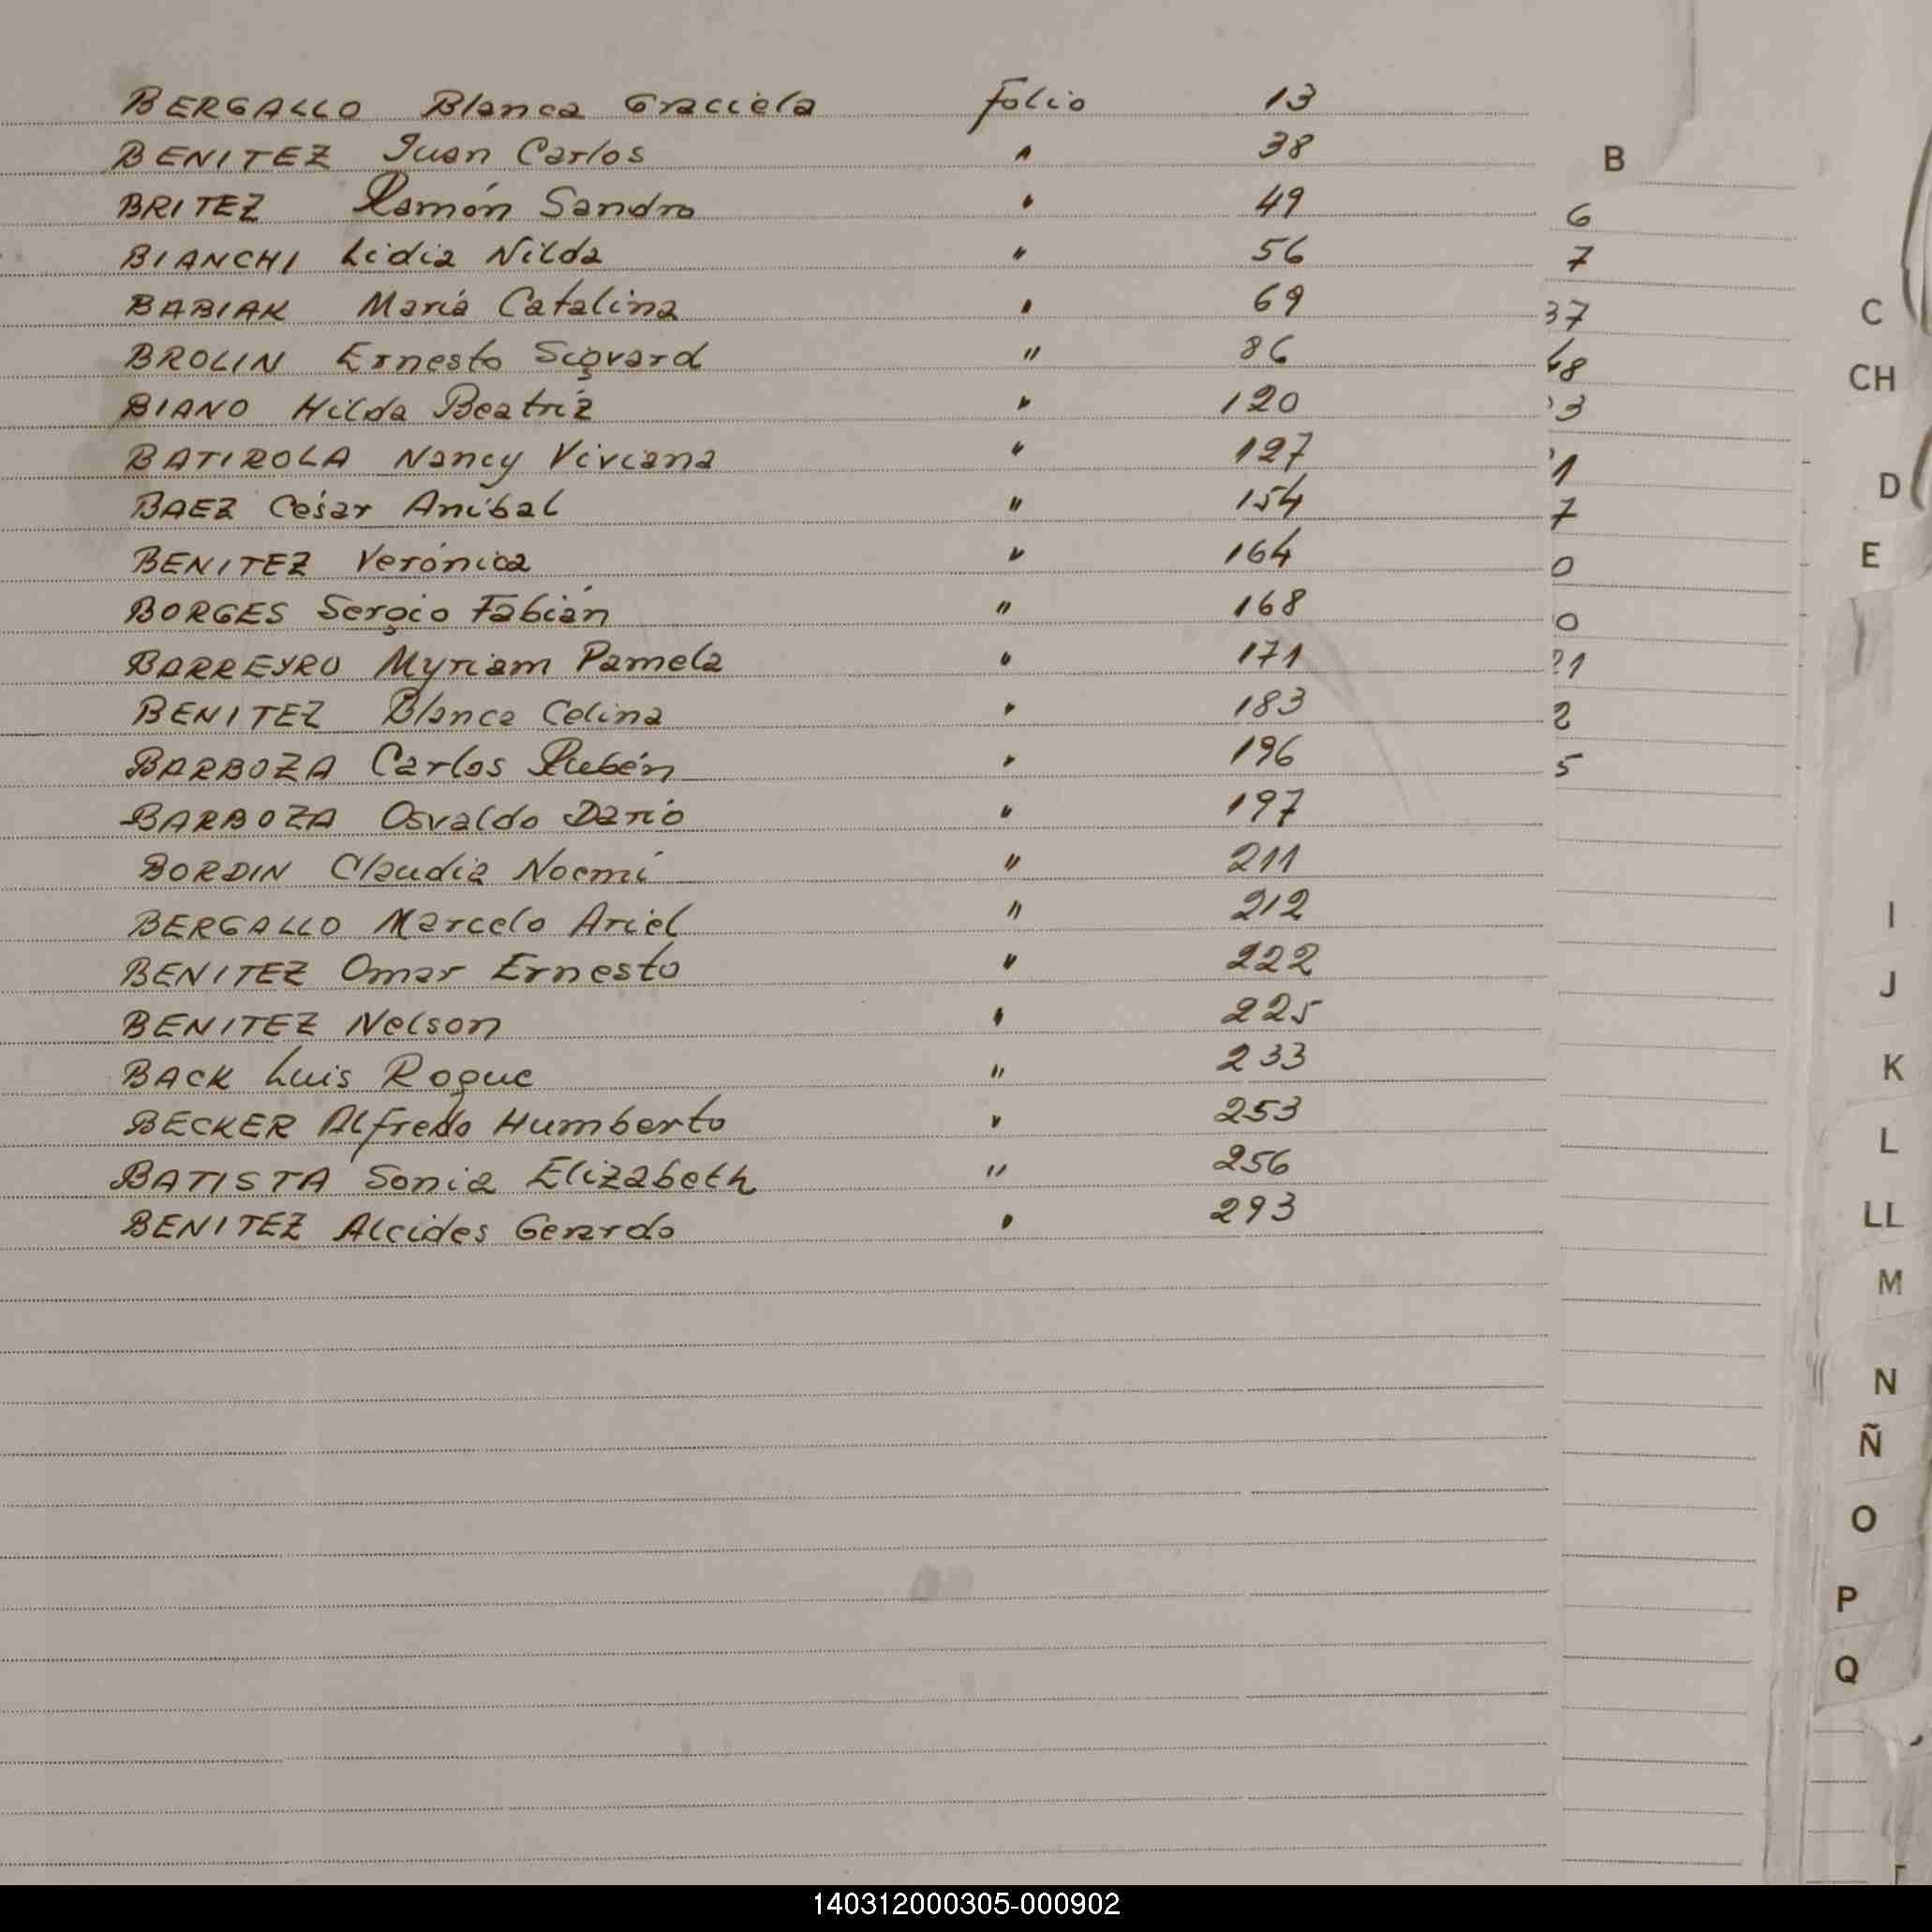 BERGALLO Blanca Graciela folio 13
BENITEZ Juan Carlos " 38
BRITEZ Ramón Sandro " 49
BIANCHI Lidia Nilda " 56
BABIAK María Catalina " 69
BROLIN Ernesto Sigvard " 86
BIANO Hilda Beatríz " 120
BATIROLA Nancy Viviana " 127
BAEZ César Aníbal " 154
BENITEZ Verónica " 164
BORGES Sergio Fabián " 168
BARREYRO Myriam Pamela " 171
BENITEZ Blanca Celina " 183
BARBOZA Carlos Rubén " 196
BARBOZA Osvaldo Darío " 197
BORDIN Claudia Noemí " 211
BERGALLO Marcelo Ariel " 212
BENITEZ Omar Ernesto " 222
BENITEZ Nelson " 225
BACK Luis Roque " 233
BECKER Alfredo Humberto " 253
BATISTA Sonia Elizabeth " 256
BENITEZ Alcides Gerardo " 293
B
6
7
37
48
3
1
7
0
0
21
2
5
C
CH
D
E
I
J
K
L
LL
M
N
Ñ
O
P
Q
140312000305-000902